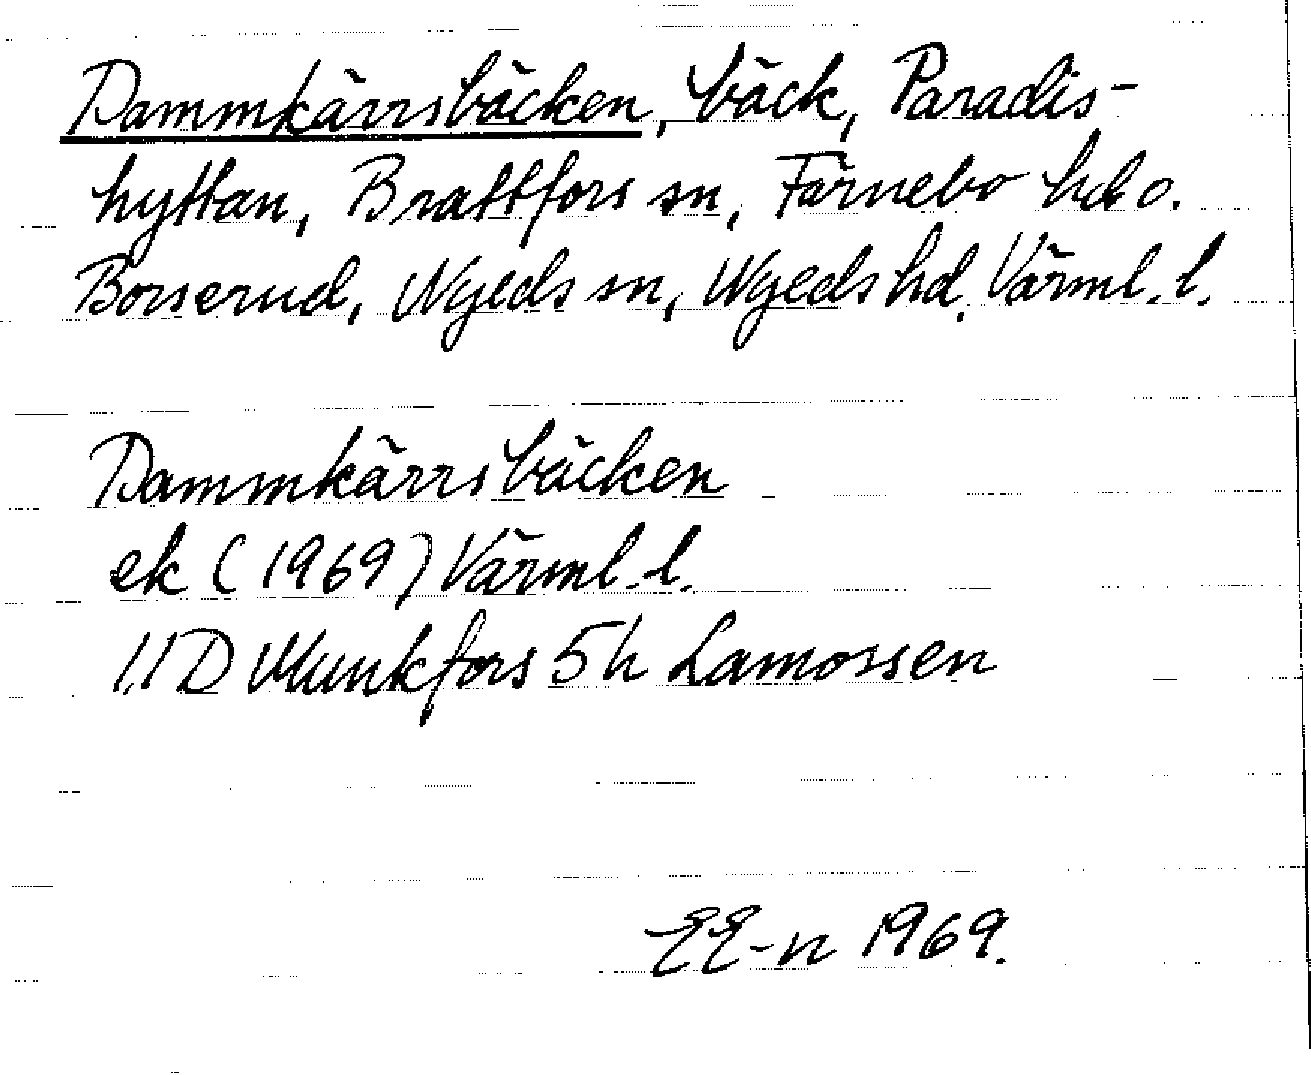 Dammkärrsbäcken, bäck, Paradis-
hyttan, Brattfors sn, Färnebo hd o.
Borserud, Nyeds sn, Nyeds hd, Värml. l.
Dammkärrsbäcken
ek (1969) Värml. l.
11D Munkfors 5h Lamossen
EE-n 1969.